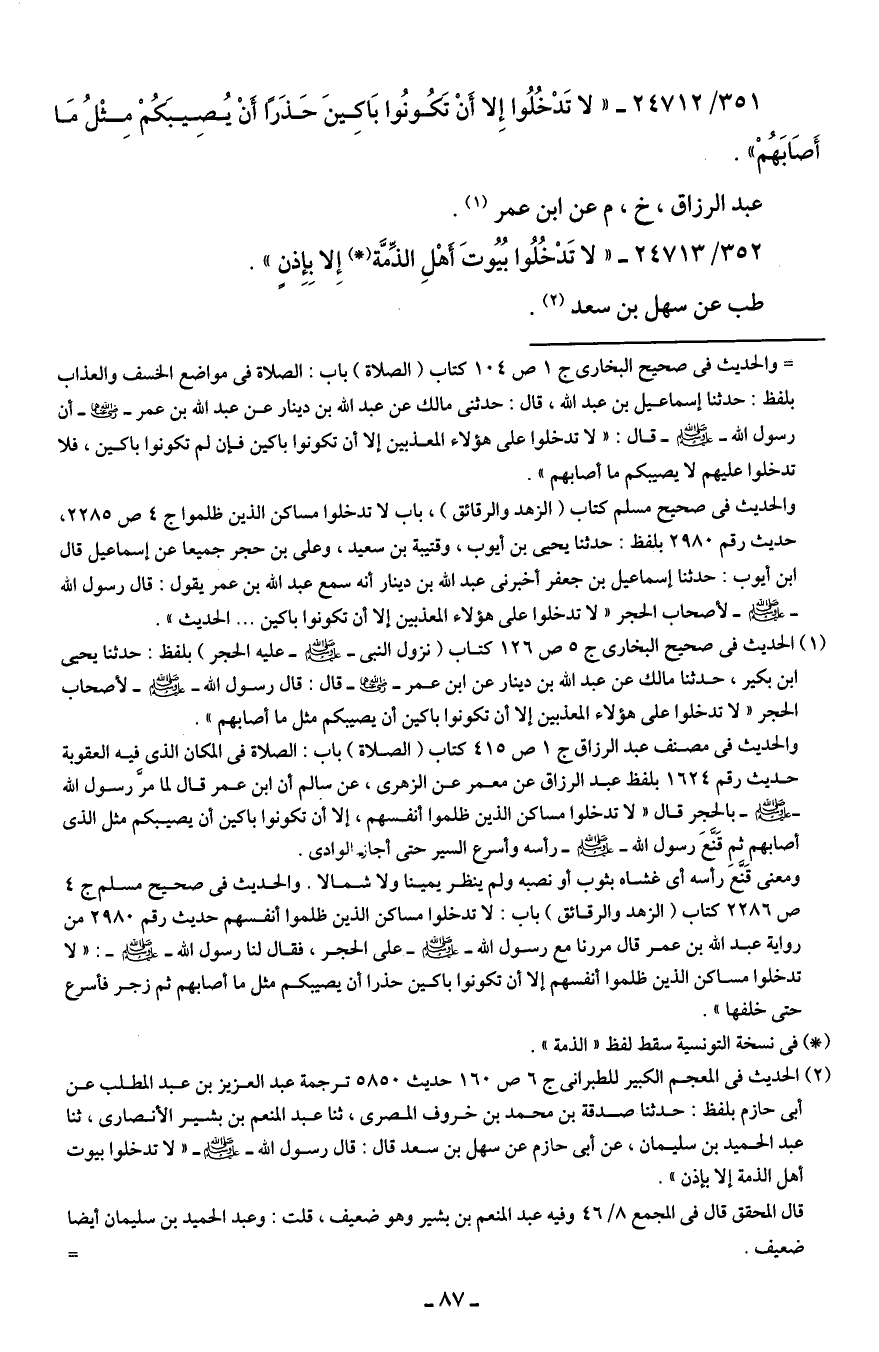 ٣٥١/ ٢٤٧١٢ ـ « لا تَدْخُلُوا إِلا أَنْ تَكُونُوا بَاكِينَ حَذَرًا أَنْ يُصِيبَكُمْ مِثْلُ مَا
أَصَابَهُمْ» .
عبد الرزاق ، خ ، م عن ابن عمر (١) .
٣٥٢/ ٢٤٧١٣ ـ « لا تَدْخُلُوا بُيُوتَ أَهْلِ الذِّمَّةِ(*) إِلا بِإِذنٍ » .
طب عن سهل بن سعد (٢) .
= والحديث فى صحيح البخارى ج ١ ص ١٠٤ كتاب ( الصلاة ) باب : الصلاة فى مواضع الخسف والعذاب
بلفظ : حدثنا إسماعيل بن عبد الله ، قال : حدثنى مالك عن عبد الله بن دينار عن عبد الله بن عمر ـ رضي الله عنهما ـ أن
رسول الله ـ ﷺ ـ قال : « لا تدخلوا على هؤلاء المعذبين إلا أن تكونوا باكين فإن لم تكونوا باكين ، فلا
تدخلوا عليهم لا يصيبكم ما أصابهم » .
والحديث فى صحيح مسلم كتاب ( الزهد والرقائق ) ، باب لا تدخلوا مساكن الذين ظلموا ج ٤ ص ٢٢٨٥،
حديث رقم ٢٩٨٠ بلفظ : حدثنا يحيى بن أيوب ، وقتيبة بن سعيد ، وعلى بن حجر جميعا عن إسماعيل قال
ابن أيوب : حدثنا إسماعيل بن جعفر أخبرنى عبد الله بن دينار أنه سمع عبد الله بن عمر يقول : قال رسول الله
ـ ﷺ ـ لأصحاب الحجر « لا تدخلوا على هؤلاء المعذبين إلا أن تكونوا باكين ... الحديث » .
(١) الحديث فى صحيح البخارى ج ٥ ص ١٢٦ كتاب ( نزول النبى ـ ﷺ ـ عليه الحجر ) بلفظ : حدثنا يحيى
ابن بكير ، حدثنا مالك عن عبد الله بن دينار عن ابن عمر ـ رضي الله عنهما ـ قال : قال رسول الله ـ ﷺ ـ لأصحاب
الحجر « لا تدخلوا على هؤلاء المعذبين إلا أن تكونوا باكين أن يصيبكم مثل ما أصابهم » .
والحديث فى مصنف عبد الرزاق ج ١ ص ٤١٥ كتاب ( الصلاة ) باب : الصلاة فى المكان الذى فيه العقوبة
حديث رقم ١٦٢٤ بلفظ عبد الرزاق عن معمر عن الزهرى ، عن سالم أن ابن عمر قال لما مرَّ رسول الله
ـ ﷺ ـ بالحجر قال « لا تدخلوا مساكن الذين ظلموا أنفسهم ، إلا أن تكونوا باكين أن يصيبكم مثل الذى
أصابهم ثم قَنَّعَ رسول الله ـ ﷺ ـ رأسه وأسرع السير حتى أجاز الوادى .
ومعنى قَنَّعَ رأسه أى غشاه بثوب أو نصبه ولم ينظر يمينا ولا شمالا . والحديث فى صحيح مسلم ج ٤
ص ٢٢٨٦ كتاب ( الزهد والرقائق ) باب : لا تدخلوا مساكن الذين ظلموا أنفسهم حديث رقم ٢٩٨٠ من
رواية عبد الله بن عمر قال مررنا مع رسول الله ـ ﷺ ـ على الحجر ، فقال لنا رسول الله ـ ﷺ ـ : « لا
تدخلوا مساكن الذين ظلموا أنفسهم إلا أن تكونوا باكين حذرا أن يصيبكم مثل ما أصابهم ثم زجر فأسرع
حتى خلفها » .
(*) فى نسخة التونسية سقط لفظ « الذمة » .
(٢) الحديث فى المعجم الكبير للطبرانى ج ٦ ص ١٦٠ حديث ٥٨٥٠ ترجمة عبد العزيز بن عبد المطلب عن
أبى حازم بلفظ : حدثنا صدقة بن محمد بن خروف المصرى ، ثنا عبد المنعم بن بشير الأنصارى ، ثنا
عبد الحميد بن سليمان ، عن أبى حازم عن سهل بن سعد قال : قال رسول الله ـ ﷺ ـ « لا تدخلوا بيوت
أهل الذمة إلا بإذن » .
قال المحقق قال فى المجمع ٨/ ٤٦ وفيه عبد المنعم بن بشير وهو ضعيف ، قلت : وعبد الحميد بن سليمان أيضا
ضعيف . =
ـ ٨٧ ـ